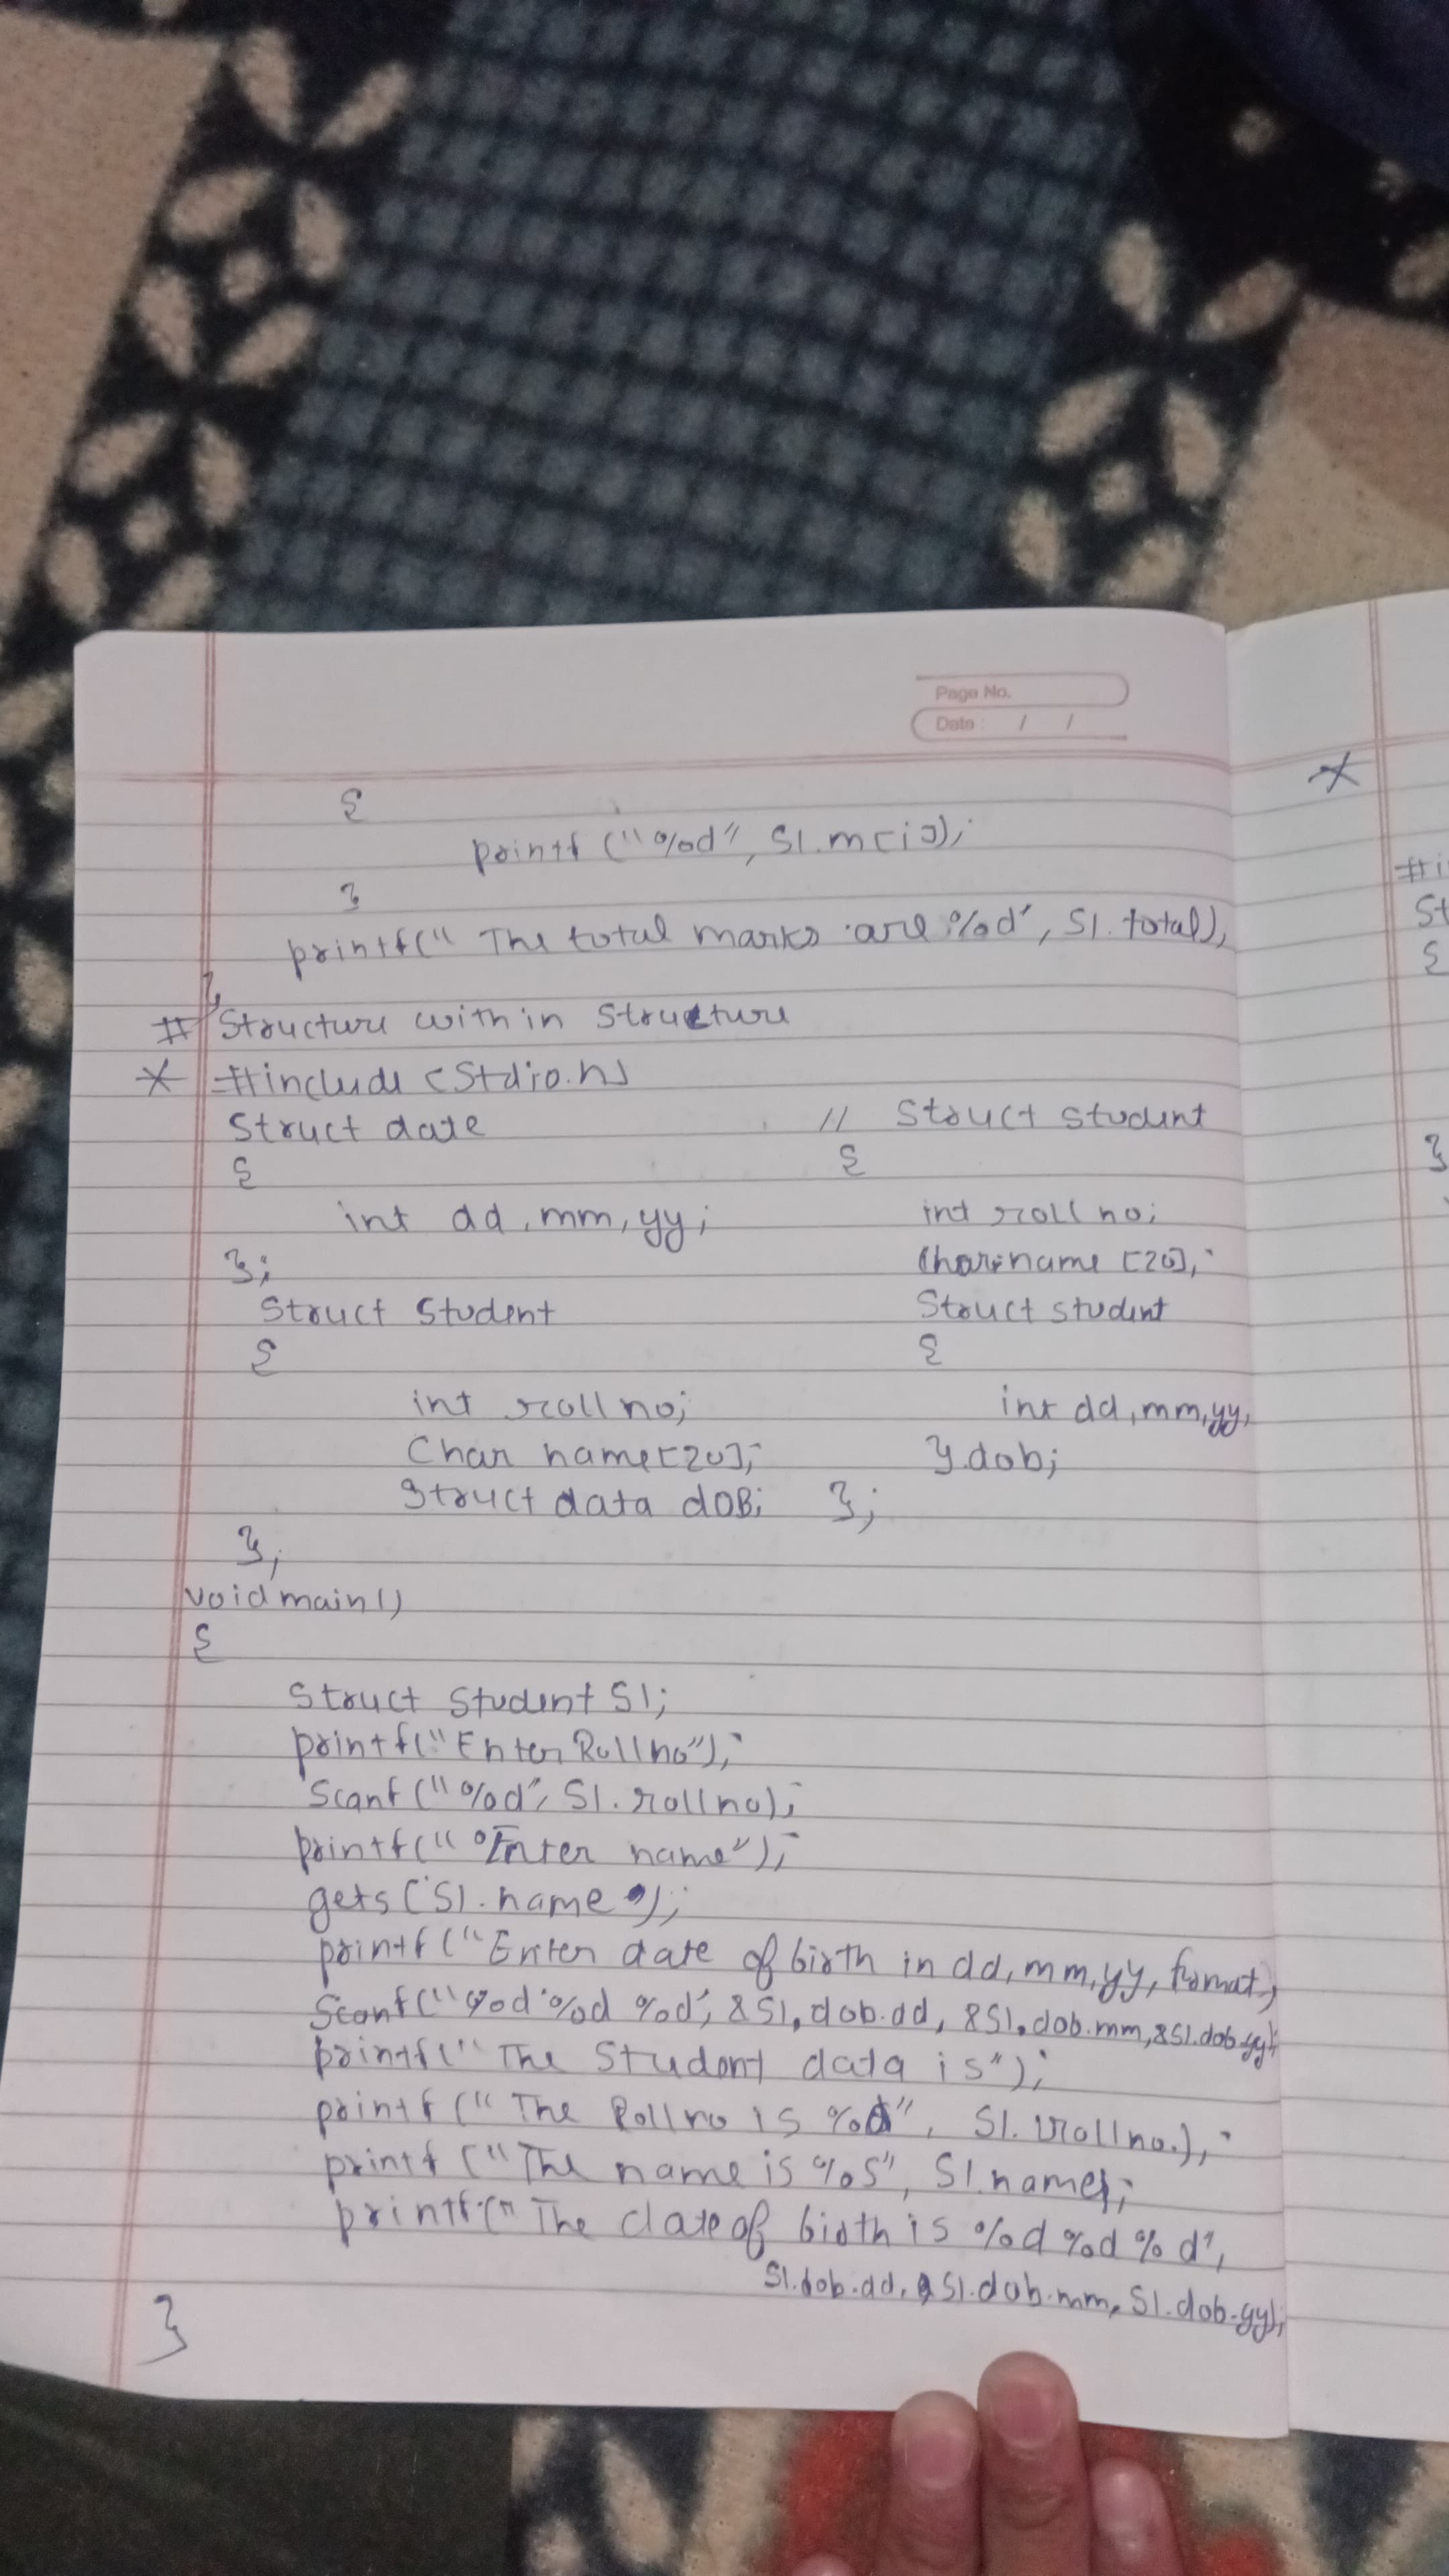 Page No.
Date : / /
{
printf ("%d", S1.m[i]);
}
printf(" The total marks are %d", S1.total);
}
# Structure within structure
* #include <Stdio.h>
Struct date
{
int dd, mm, yy;
};
Struct Student
{
int rollno;
Char name[20];
Struct data dOB;
};
// Struct student
{
int rollno;
Char name [20];
Struct student
{
int dd, mm, yy,
}.dob;
};
void main()
{
Struct Student S1;
printf("Enter Rollno");
Scanf ("%d", S1.rollno);
printf(" Enter name");
gets(S1.name);
printf ("Enter date of birth in dd, mm, yy, fomat,
Scanf("%d %d %d", &S1.dob.dd, &S1.dob.mm, &S1.dob.yy);
printf(" The Student data is");
printf (" The Rollno is %d", S1.rollno.);
printf ("The name is %s", S1.name);
printf (" The date of birth is %d %d %d",
S1.dob.dd, S1.dob.mm, S1.dob.yy);
}
*
#i
St
{
}